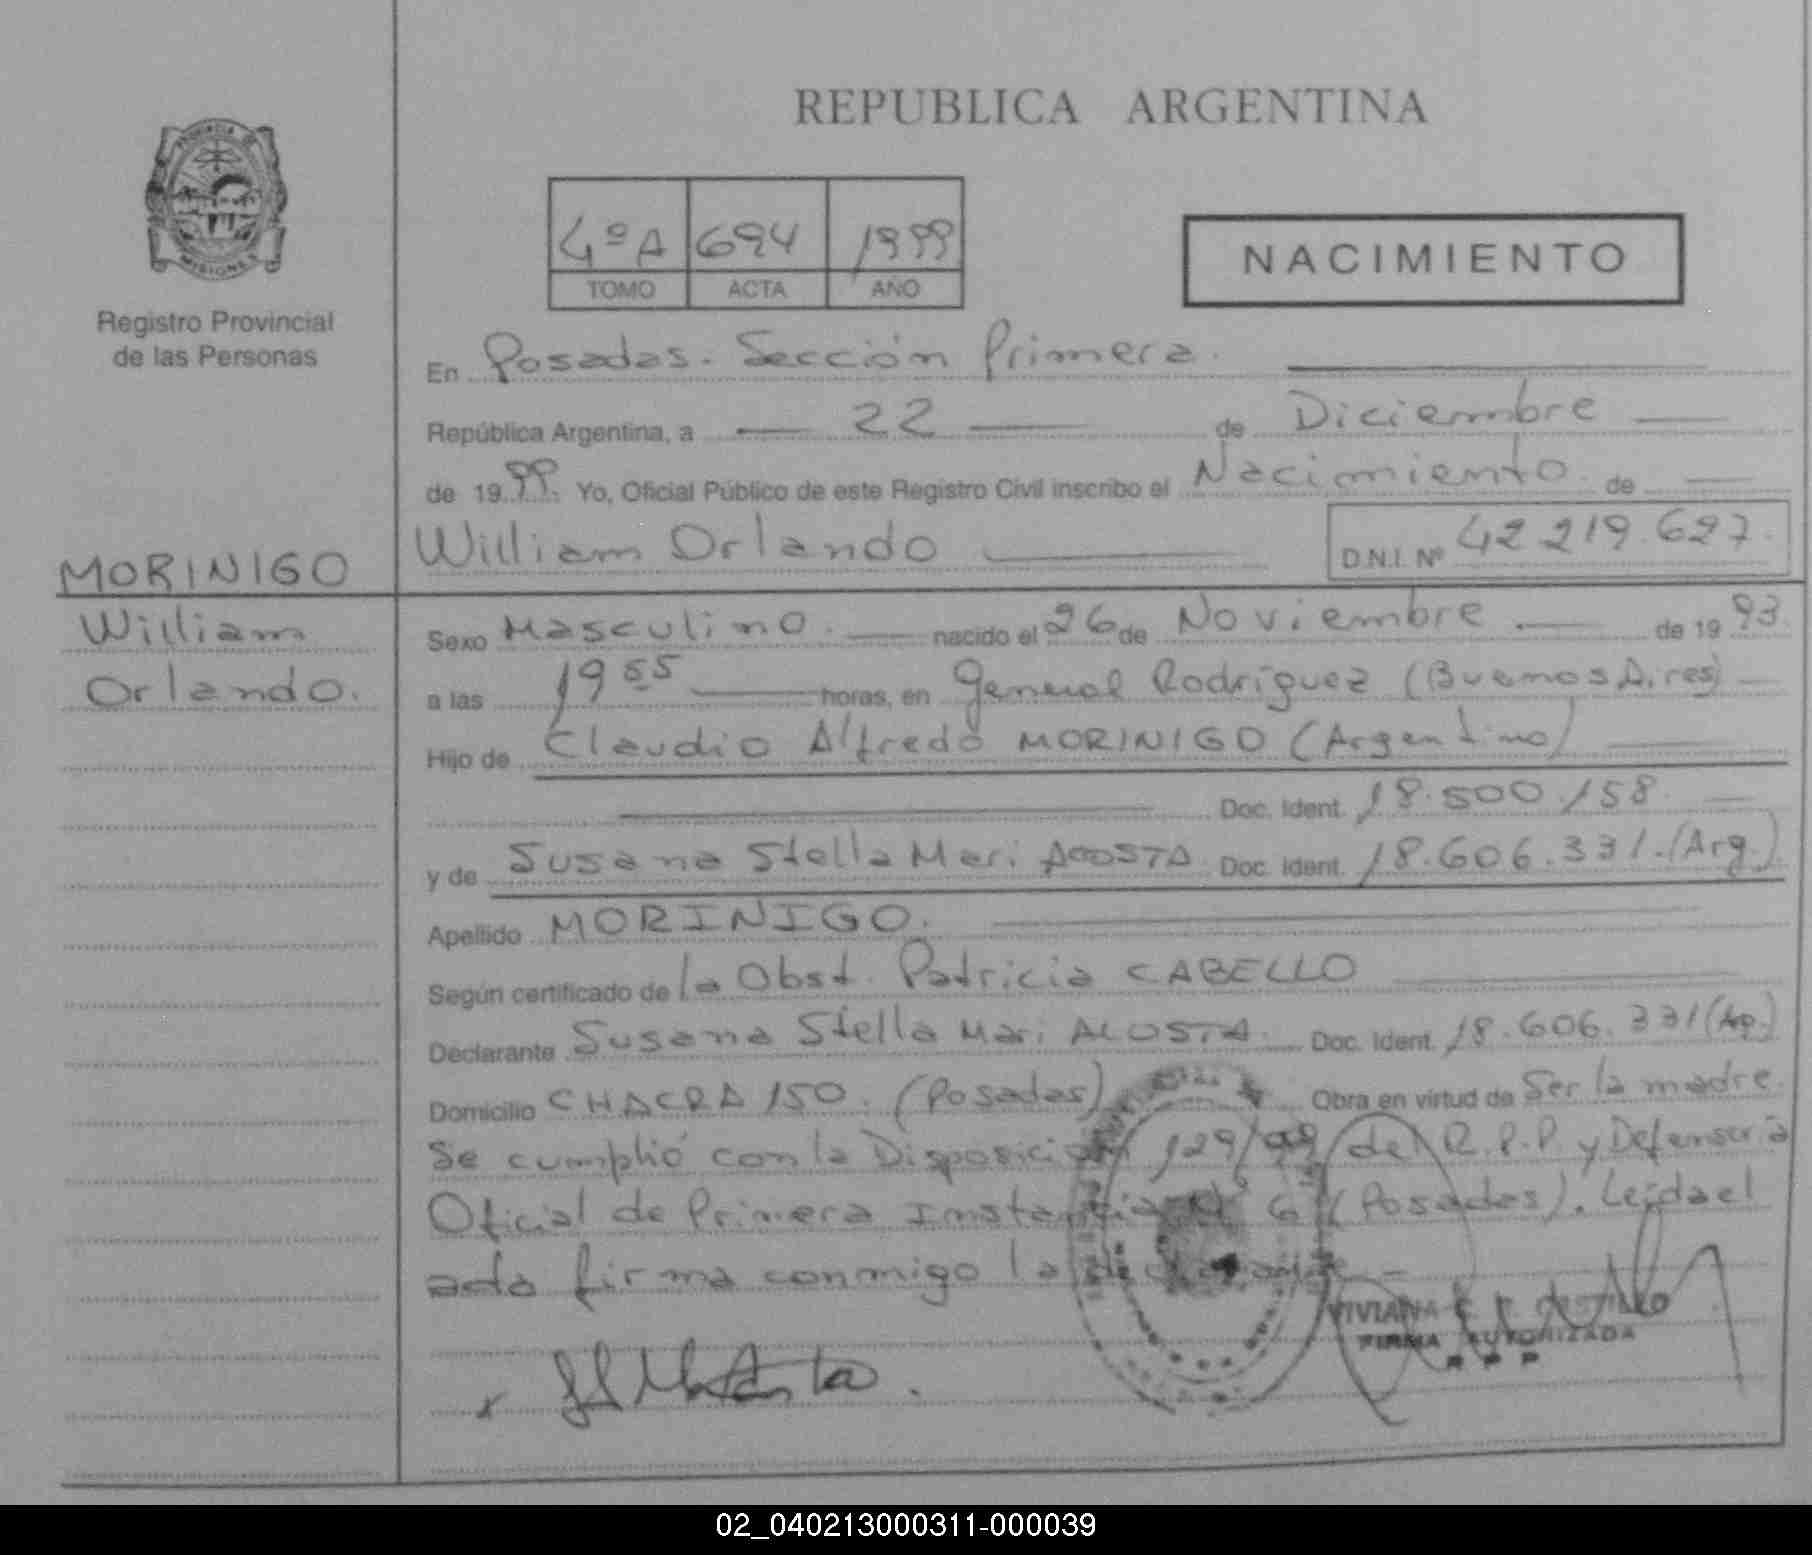 REPUBLICA ARGENTINA
PROVINCIA DE
MISIONES
Registro Provincial
de las Personas
4º A 694 1999
TOMO ACTA AÑO
NACIMIENTO
En Posadas. Sección Primera.
República Argentina, a 22 de Diciembre
de 1999. Yo, Oficial Público de este Registro Civil inscribo el Nacimiento. de
William Orlando
D.N.I. Nº 42 219.627.
MORINIGO
William
Orlando.
Sexo Masculino. nacido el 26 de Noviembre de 1993.
a las 19 55 horas, en General Rodríguez (Buenos Aires)
Hijo de Claudio Alfredo MORINIGO (Argentino)
Doc. Ident. 18.500.158.
y de Susana Stella Mari ACOSTA. Doc. Ident. 18.606.331.(Arg.)
Apellido MORINIGO.
Según certificado de la Obst. Patricia CABELLO
Declarante Susana Stella Mari ACOSTA. Doc. Ident. 18.606.331(Arg.)
Domicilio CHACRA 150. (Posadas) Obra en virtud de Ser la madre.
Se cumplió con la Disposición 129/99 del R.P.P y Defensoría
Oficial de Primera Instancia Nº 6 (Posadas). Leída el
acta firma conmigo la declarante.-
VIVIANA CASTILLO
FIRMA AUTORIZADA
R P P
02_040213000311-000039